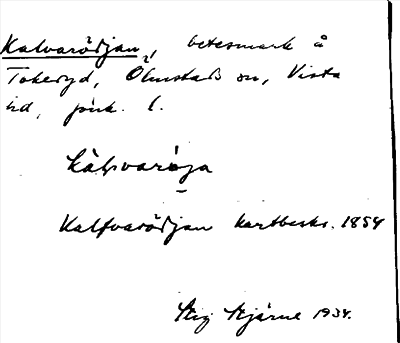 Kalvarödjan, betesmark å
Tokeryd, Ölmstads sn, Vista
hd, jönk. l.
Kalfvarödjan kartbeskr. 1854
Stig Hjärne 1934.